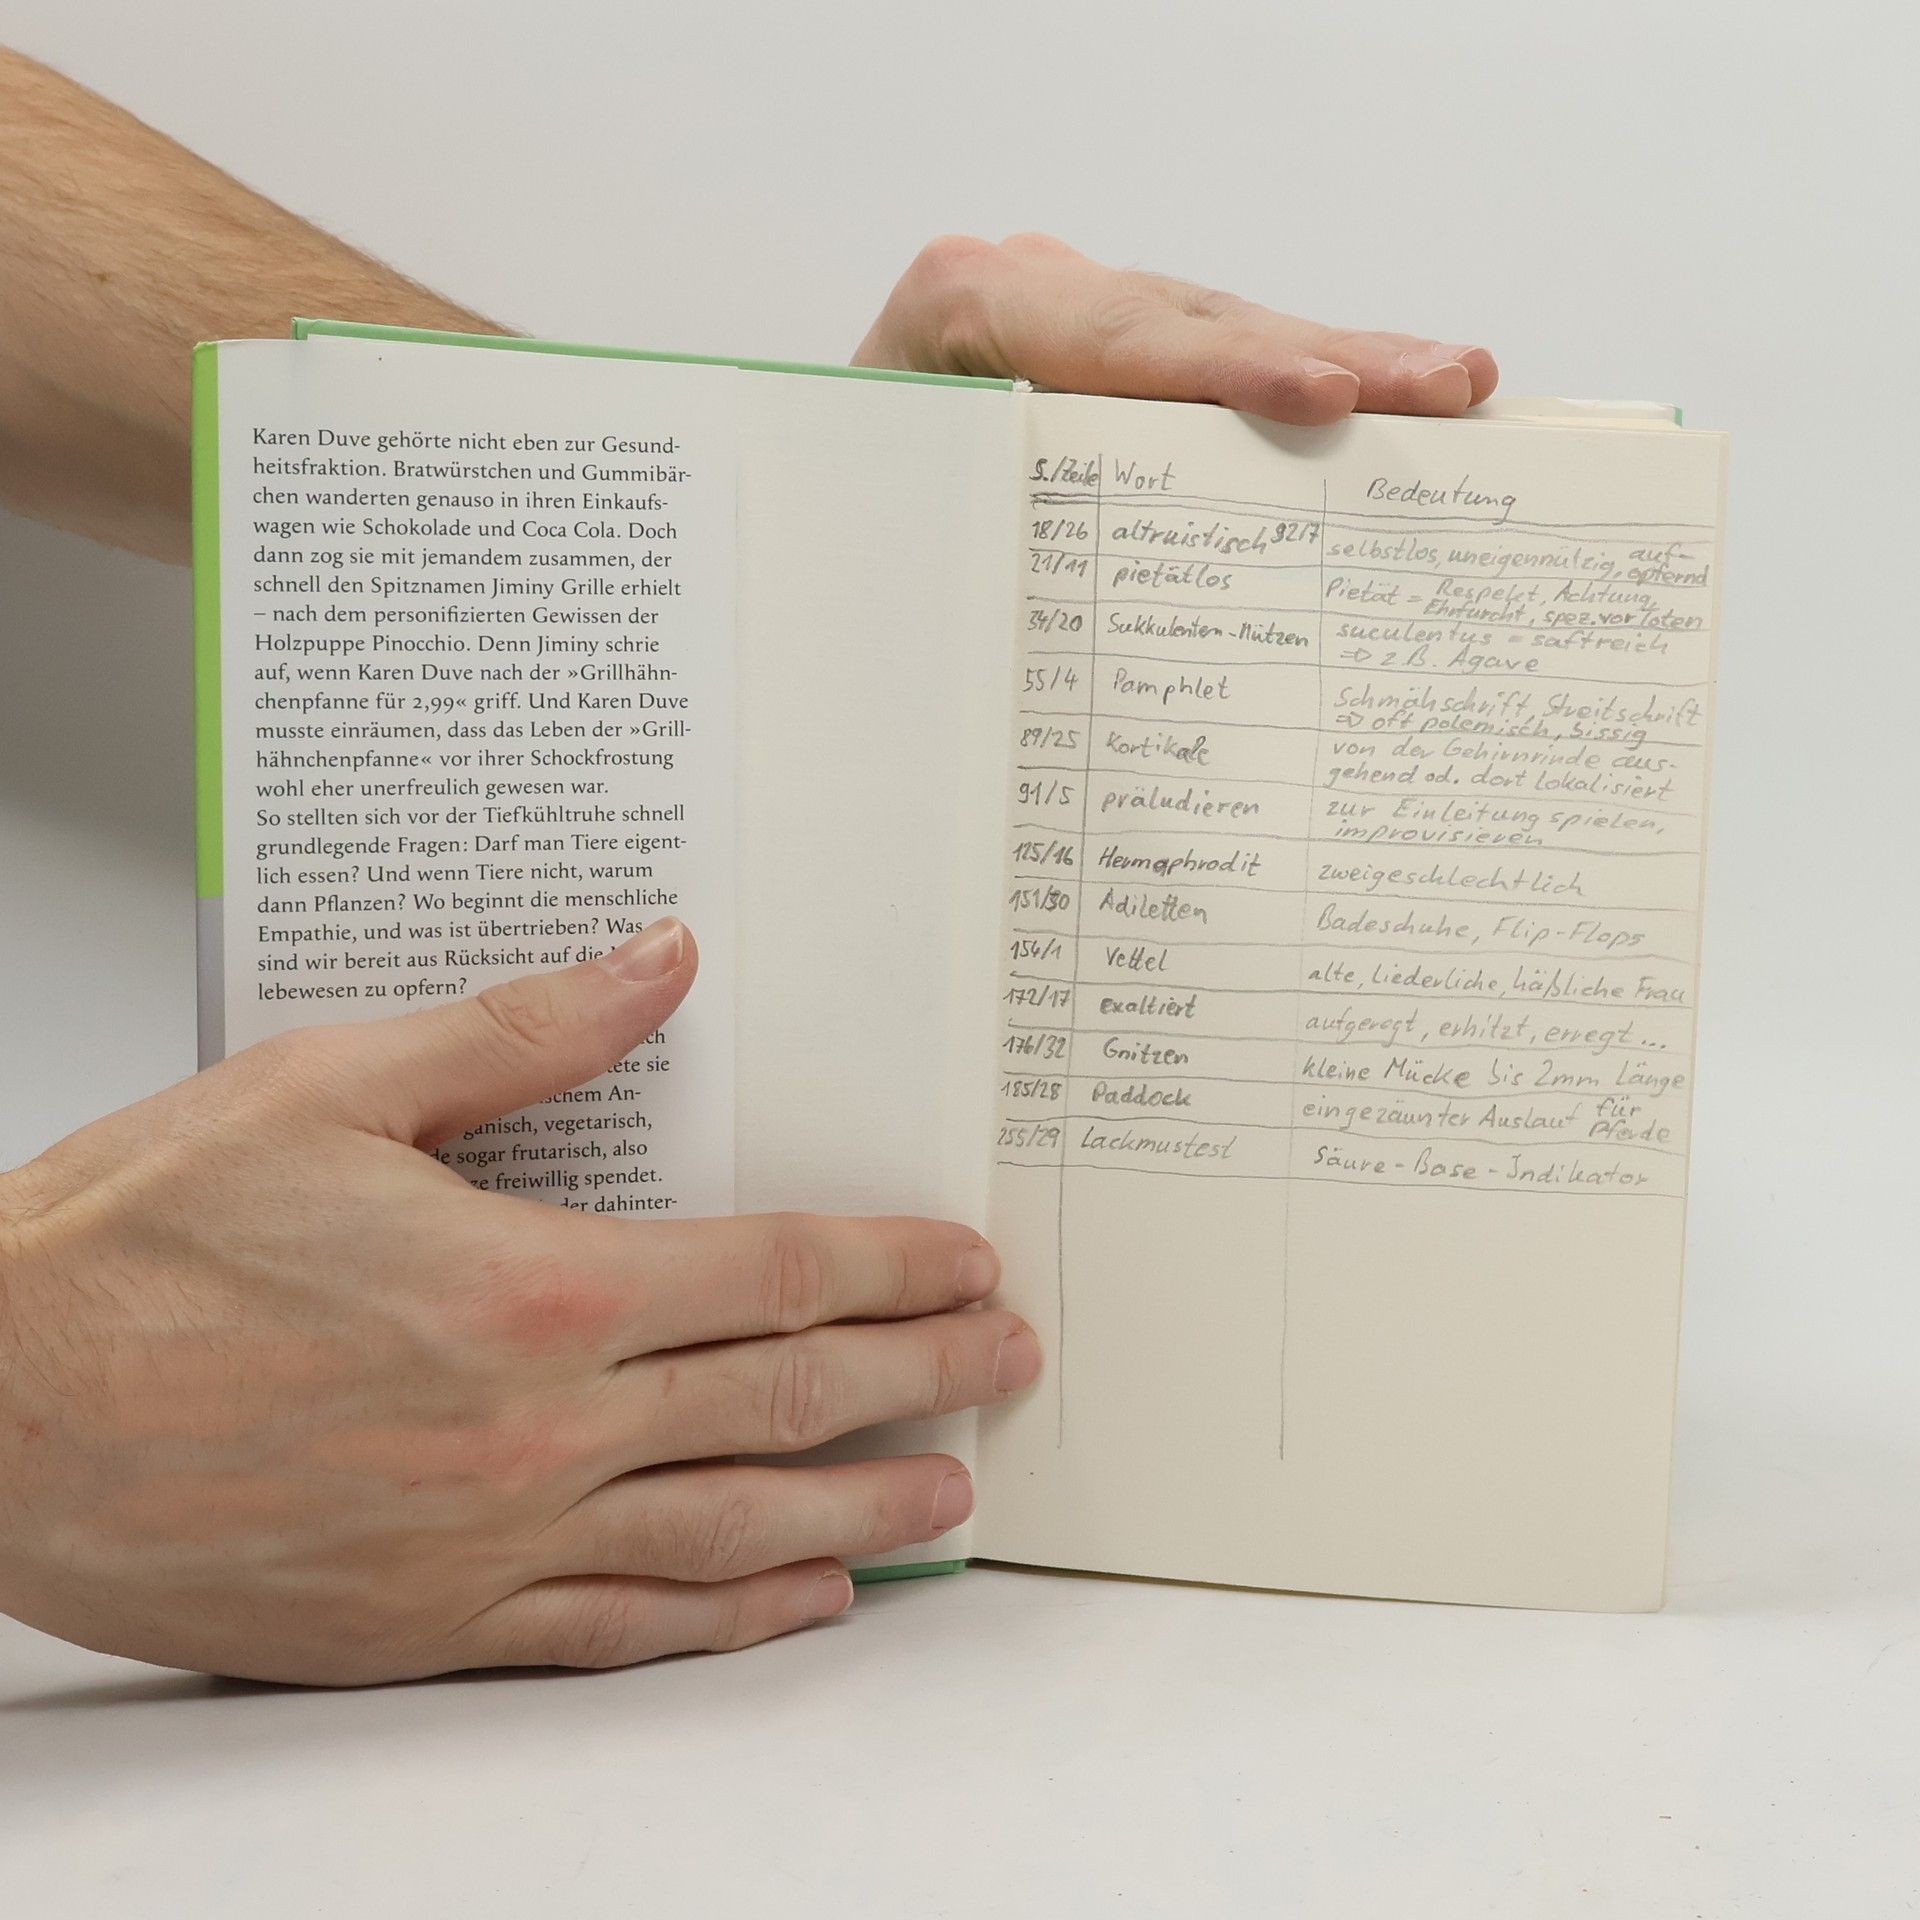 Karen Duve gehörte nicht eben zur Gesund-
heitsfraktion. Bratwürstchen und Gummibär-
chen wanderten genauso in ihren Einkaufs-
wagen wie Schokolade und Coca Cola. Doch
dann zog sie mit jemandem zusammen, der
schnell den Spitznamen Jiminy Grille erhielt
– nach dem personifizierten Gewissen der
Holzpuppe Pinocchio. Denn Jiminy schrie
auf, wenn Karen Duve nach der »Grillhähn-
chenpfanne für 2,99« griff. Und Karen Duve
musste einräumen, dass das Leben der »Grill-
hähnchenpfanne« vor ihrer Schockfrostung
wohl eher unerfreulich gewesen war.
So stellten sich vor der Tiefkühltruhe schnell
grundlegende Fragen: Darf man Tiere eigent-
lich essen? Und wenn Tiere nicht, warum
dann Pflanzen? Wo beginnt die menschliche
Empathie, und was ist übertrieben? Was
sind wir bereit aus Rücksicht auf die
lebewesen zu opfern?
sie
An-
vegetarisch,
sogar frutarisch, also
freiwillig spendet.
dahinter-
S./Zeile Wort Bedeutung
18/26 altruistisch 92/7 selbstlos, uneigennützig, auf-
opfernd
21/11 pietätlos Pietät = Respekt, Achtung,
Ehrfurcht, spez. vor Toten
34/20 Sukkulenten-Mützen suculentus = saftreich
=> z.B. Agave
55/4 Pamphlet Schmähschrift, Streitschrift
=> oft polemisch, bissig
89/25 Kortikale von der Gehirnrinde aus-
gehend od. dort lokalisiert
91/5 präludieren zur Einleitung spielen,
improvisieren
125/16 Hermaphrodit zweigeschlechtlich
151/30 Adiletten Badeschuhe, Flip-Flops
154/1 Vettel alte, liederliche, häßliche Frau
172/17 exaltiert aufgeregt, erhitzt, erregt...
176/32 Gnitzen kleine Mücke bis 2mm Länge
185/28 Paddock eingezäunter Auslauf für
Pferde
255/29 Lackmustest Säure-Base-Indikator